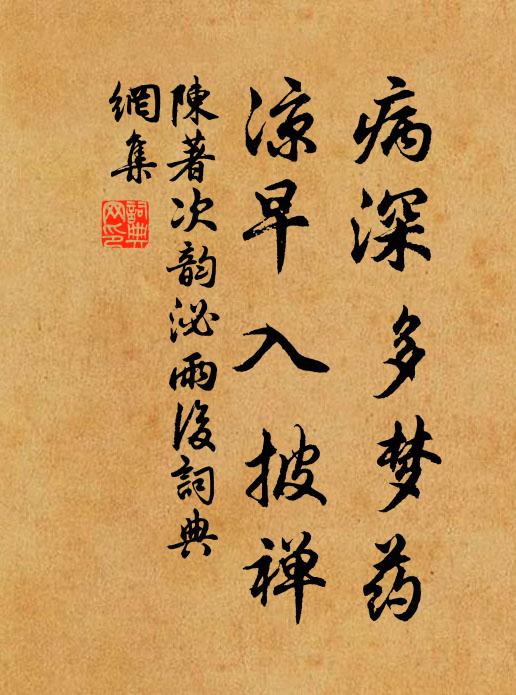 病深多梦药
凉早入披禅
陳著次韵泌雨後詞典
網集
詞典
网印